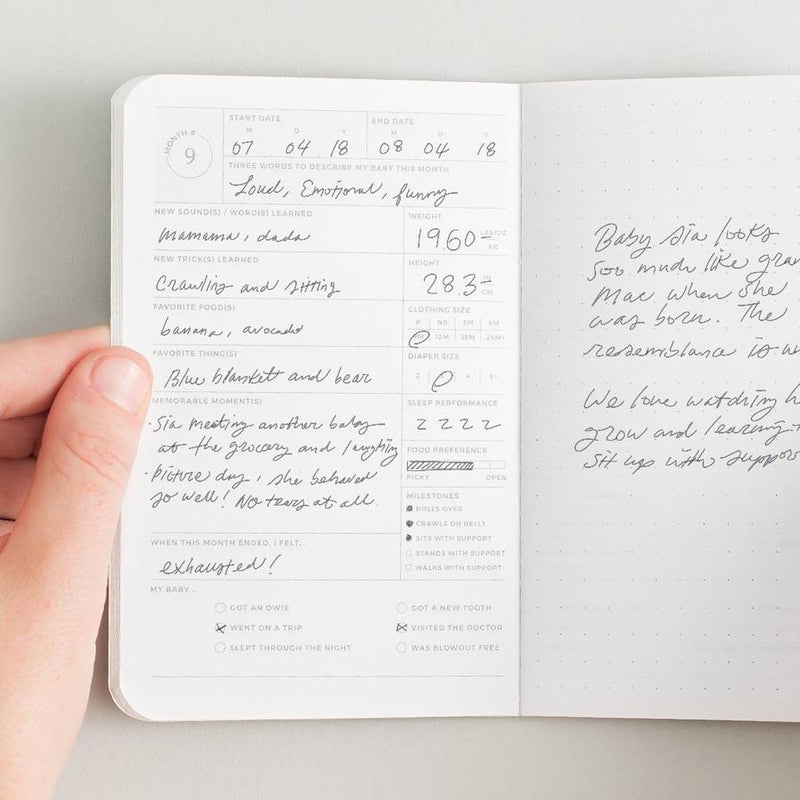 MONTH #
9
START DATE
M D Y
07 04 18
END DATE
M D Y
08 04 18
THREE WORDS TO DESCRIBE MY BABY THIS MONTH
Loud, Emotional, funny
NEW SOUND(S) / WORD(S) LEARNED
mamama, dada
NEW TRICK(S) LEARNED
Crawling and sitting
FAVORITE FOOD(S)
banana, avocado
FAVORITE THING(S)
Blue blanket and bear
MEMORABLE MOMENT(S)
· Sia meeting another baby
at the grocery and laughing
· picture day, she behaved
so well! No tears at all.
WHEN THIS MONTH ENDED, I FELT...
exhausted!
WEIGHT
1960 LBS/OZ
KG
HEIGHT
28.3 IN
CM
CLOTHING SIZE
P NB 3M 6M
9M 12M 18M 24M+
DIAPER SIZE
2 4 5+
SLEEP PERFORMANCE
Z Z Z Z
FOOD PREFERENCE
PICKY OPEN
MILESTONES
ROLLS OVER
CRAWLS ON BELLY
SITS WITH SUPPORT
STANDS WITH SUPPORT
WALKS WITH SUPPORT
MY BABY...
GOT AN OWIE
WENT ON A TRIP
SLEPT THROUGH THE NIGHT
GOT A NEW TOOTH
VISITED THE DOCTOR
WAS BLOWOUT FREE
Baby Sia looks
soo much like gran
Mac when she
was born. The
resemblance is
We love watching h
grow and learning
sit up with suppor